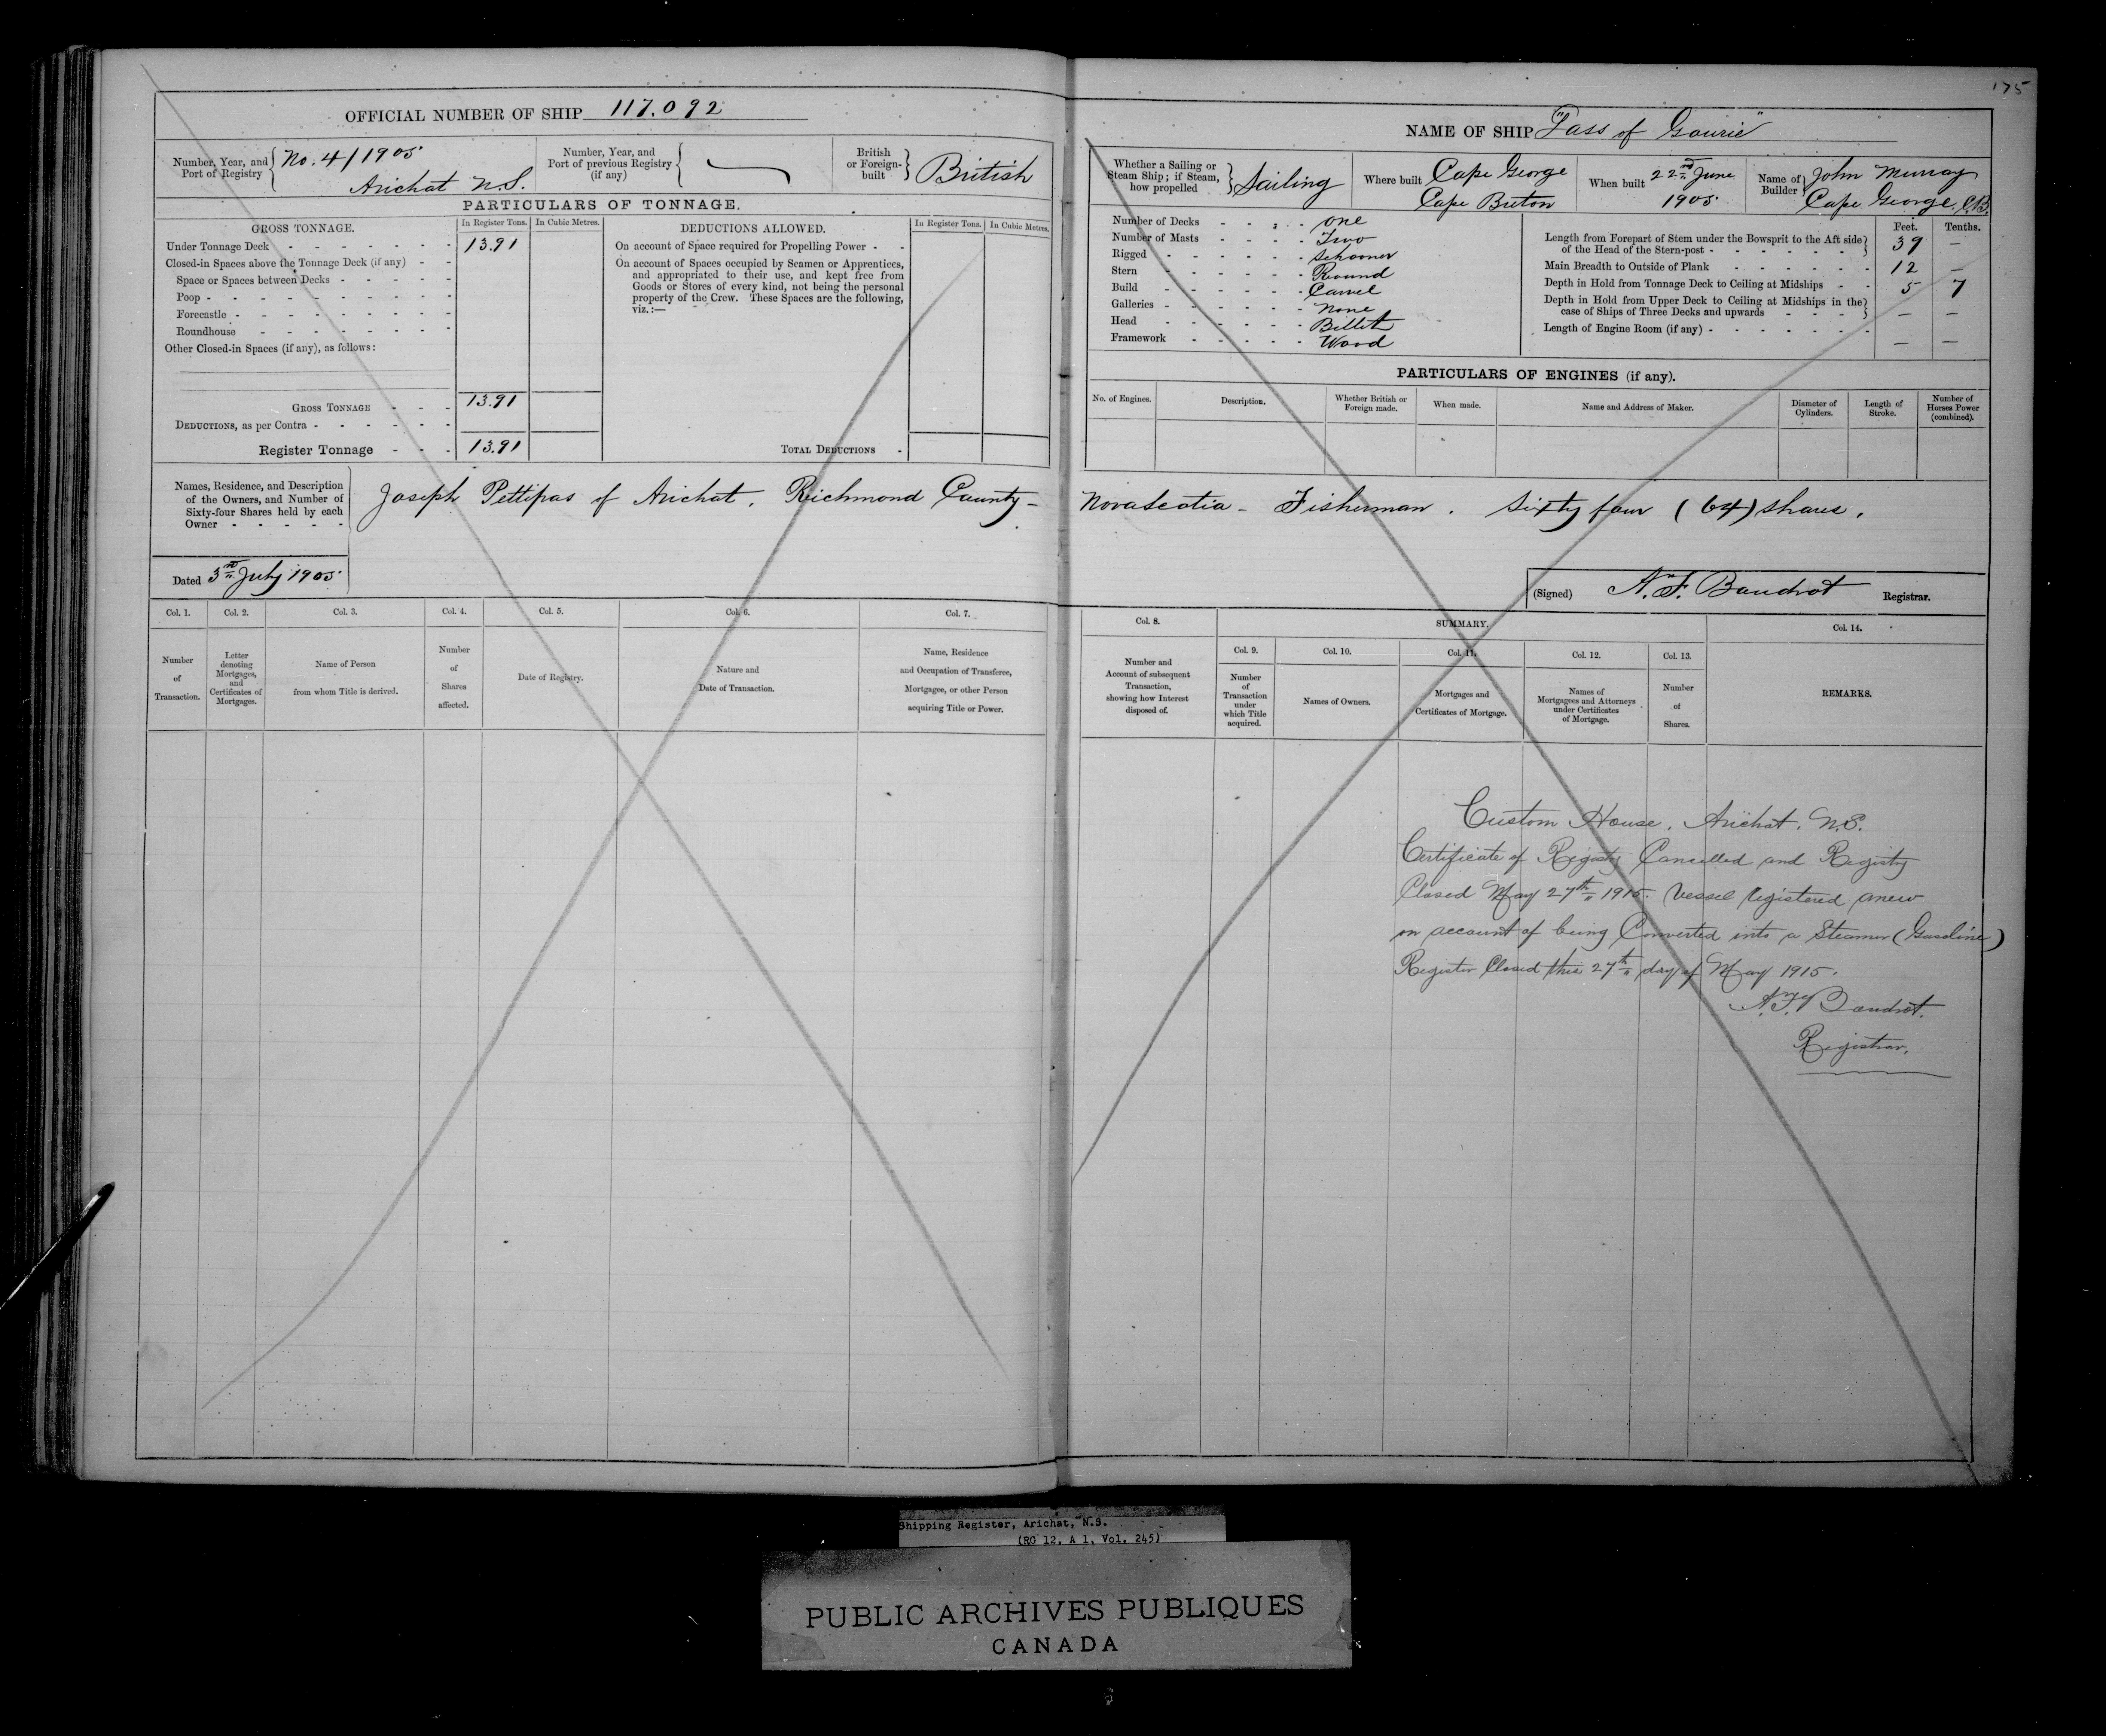 175
OFFICIAL NUMBER OF SHIP 117.092
Number, Year, and Port of Registry No. 4/1905 Arichat N.S.
Number, Year, and Port of previous Registry (if any)
British or Foreign-built British
PARTICULARS OF TONNAGE.
GROSS TONNAGE. In Register Tons. In Cubic Metres.
Under Tonnage Deck 13.91
Closed-in Spaces above the Tonnage Deck (if any)
Space or Spaces between Decks
Poop
Forecastle
Roundhouse
Other Closed-in Spaces (if any), as follows:
GROSS TONNAGE 13.91
DEDUCTIONS, as per Contra
Register Tonnage 13.91
DEDUCTIONS ALLOWED. In Register Tons. In Cubic Metres.
On account of Space required for Propelling Power
On account of Spaces occupied by Seamen or Apprentices,
and appropriated to their use, and kept free from
Goods or Stores of every kind, not being the personal
property of the Crew. These Spaces are the following,
viz.:—
TOTAL DEDUCTIONS
NAME OF SHIP "Lass of Gowrie"
Whether a Sailing or Steam Ship; if Steam, how propelled Sailing
Where built Cape George Cape Breton
When built 22nd June 1905
Name of Builder John Murray Cape George, C.B.
Number of Decks one
Number of Masts Two
Rigged Schooner
Stern Round
Build Carvel
Galleries None
Head Billet
Framework Wood
Feet. Tenths.
Length from Forepart of Stem under the Bowsprit to the Aft side
of the Head of the Stern-post 39 —
Main Breadth to Outside of Plank 12 —
Depth in Hold from Tonnage Deck to Ceiling at Midships 5 7
Depth in Hold from Upper Deck to Ceiling at Midships in the
case of Ships of Three Decks and upwards — —
Length of Engine Room (if any) — —
PARTICULARS OF ENGINES (if any).
No. of Engines. Description. Whether British or Foreign made. When made. Name and Address of Maker. Diameter of Cylinders. Length of Stroke. Number of Horses Power (combined).
Names, Residence, and Description
of the Owners, and Number of
Sixty-four Shares held by each
Owner
Joseph Pettipas of Arichat. Richmond County – Nova Scotia – Fisherman. Sixty four (64) shares.
Dated 3rd July 1905.
(Signed) A. F. Baudrot Registrar.
Col. 1. Col. 2. Col. 3. Col. 4. Col. 5. Col. 6. Col. 7.
Number of Transaction.
Letter denoting Mortgages, and Certificates of Mortgages.
Name of Person from whom Title is derived.
Number of Shares affected.
Date of Registry.
Nature and Date of Transaction.
Name, Residence and Occupation of Transferee, Mortgagee, or other Person acquiring Title or Power.
Col. 8. SUMMARY. Col. 14.
Col. 9. Col. 10. Col. 11. Col. 12. Col. 13.
Number and Account of subsequent Transaction, showing how Interest disposed of.
Number of Transaction under which Title acquired.
Names of Owners.
Mortgages and Certificates of Mortgage.
Names of Mortgagees and Attorneys under Certificates of Mortgage.
Number of Shares.
REMARKS.
Custom House, Arichat. N.S.
Certificate of Registry Cancelled and Registry
Closed May 27th 1915. Vessel registered anew
on account of being Converted into a Steamer (Gasoline)
Register Closed this 27th day of May 1915.
A. F. Baudrot.
Registrar.
Shipping Register, Arichat, N.S.
(RG 12, A 1, Vol. 245)
PUBLIC ARCHIVES PUBLIQUES
CANADA